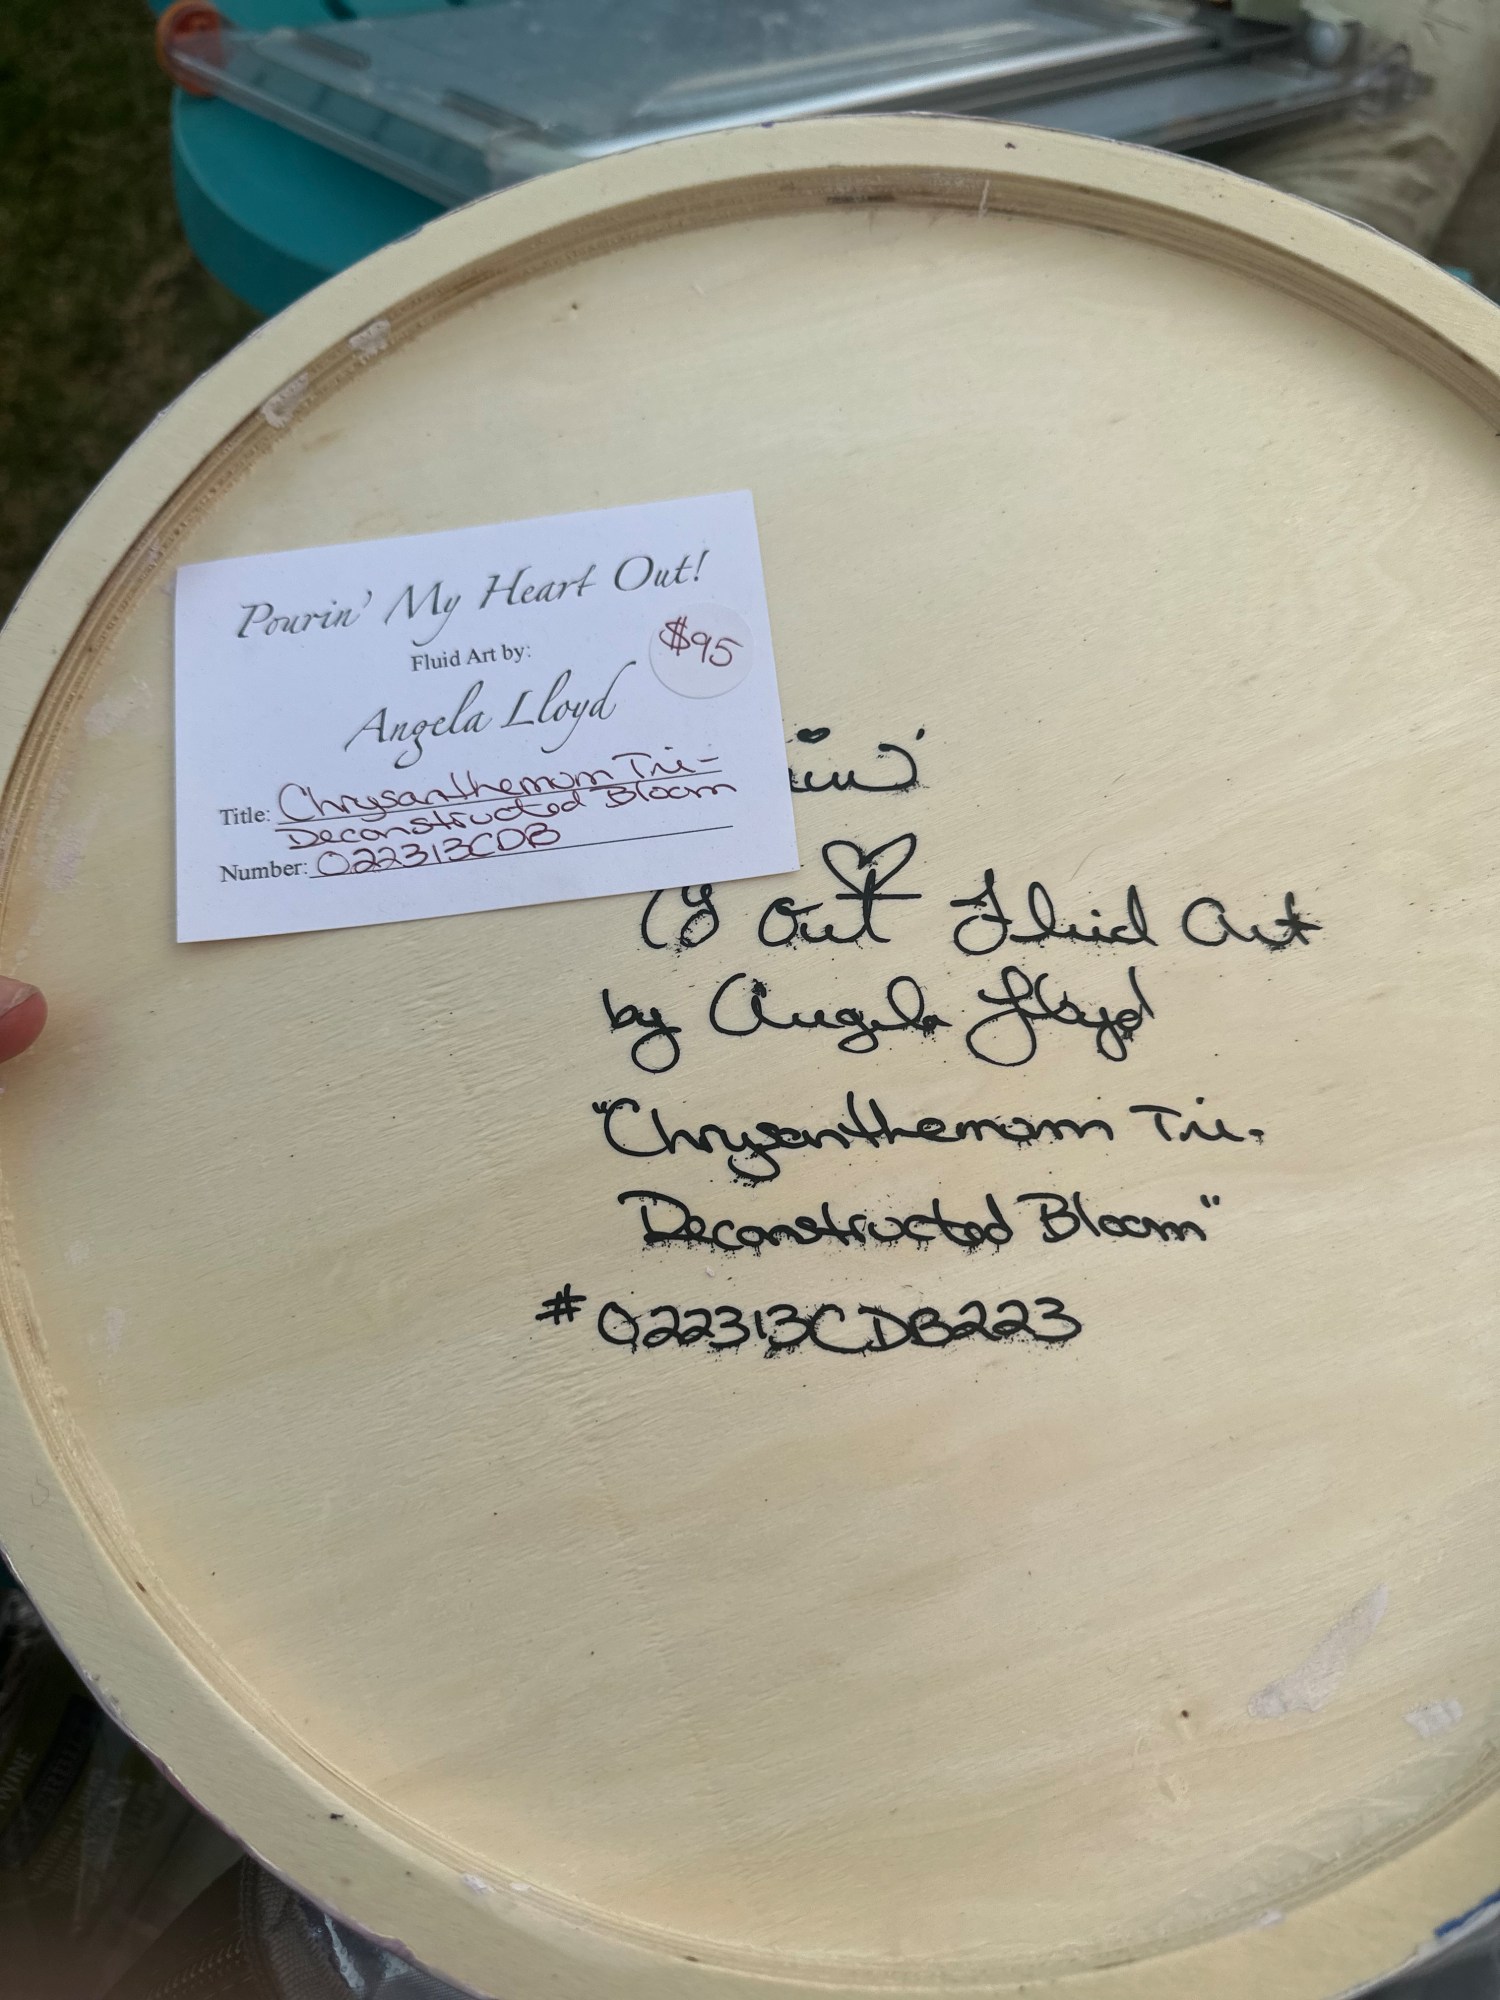 Pourin' My Heart Out!
Fluid Art by:
$95
Angela Lloyd
Title: Chrysanthemum Tri-
Deconstructed Bloom
Number: 022313CDB
in'
y Out Fluid Art
by Angela Lloyd
"Chrysanthemum Tri-
Deconstructed Bloom"
#022313CDB223
WINE